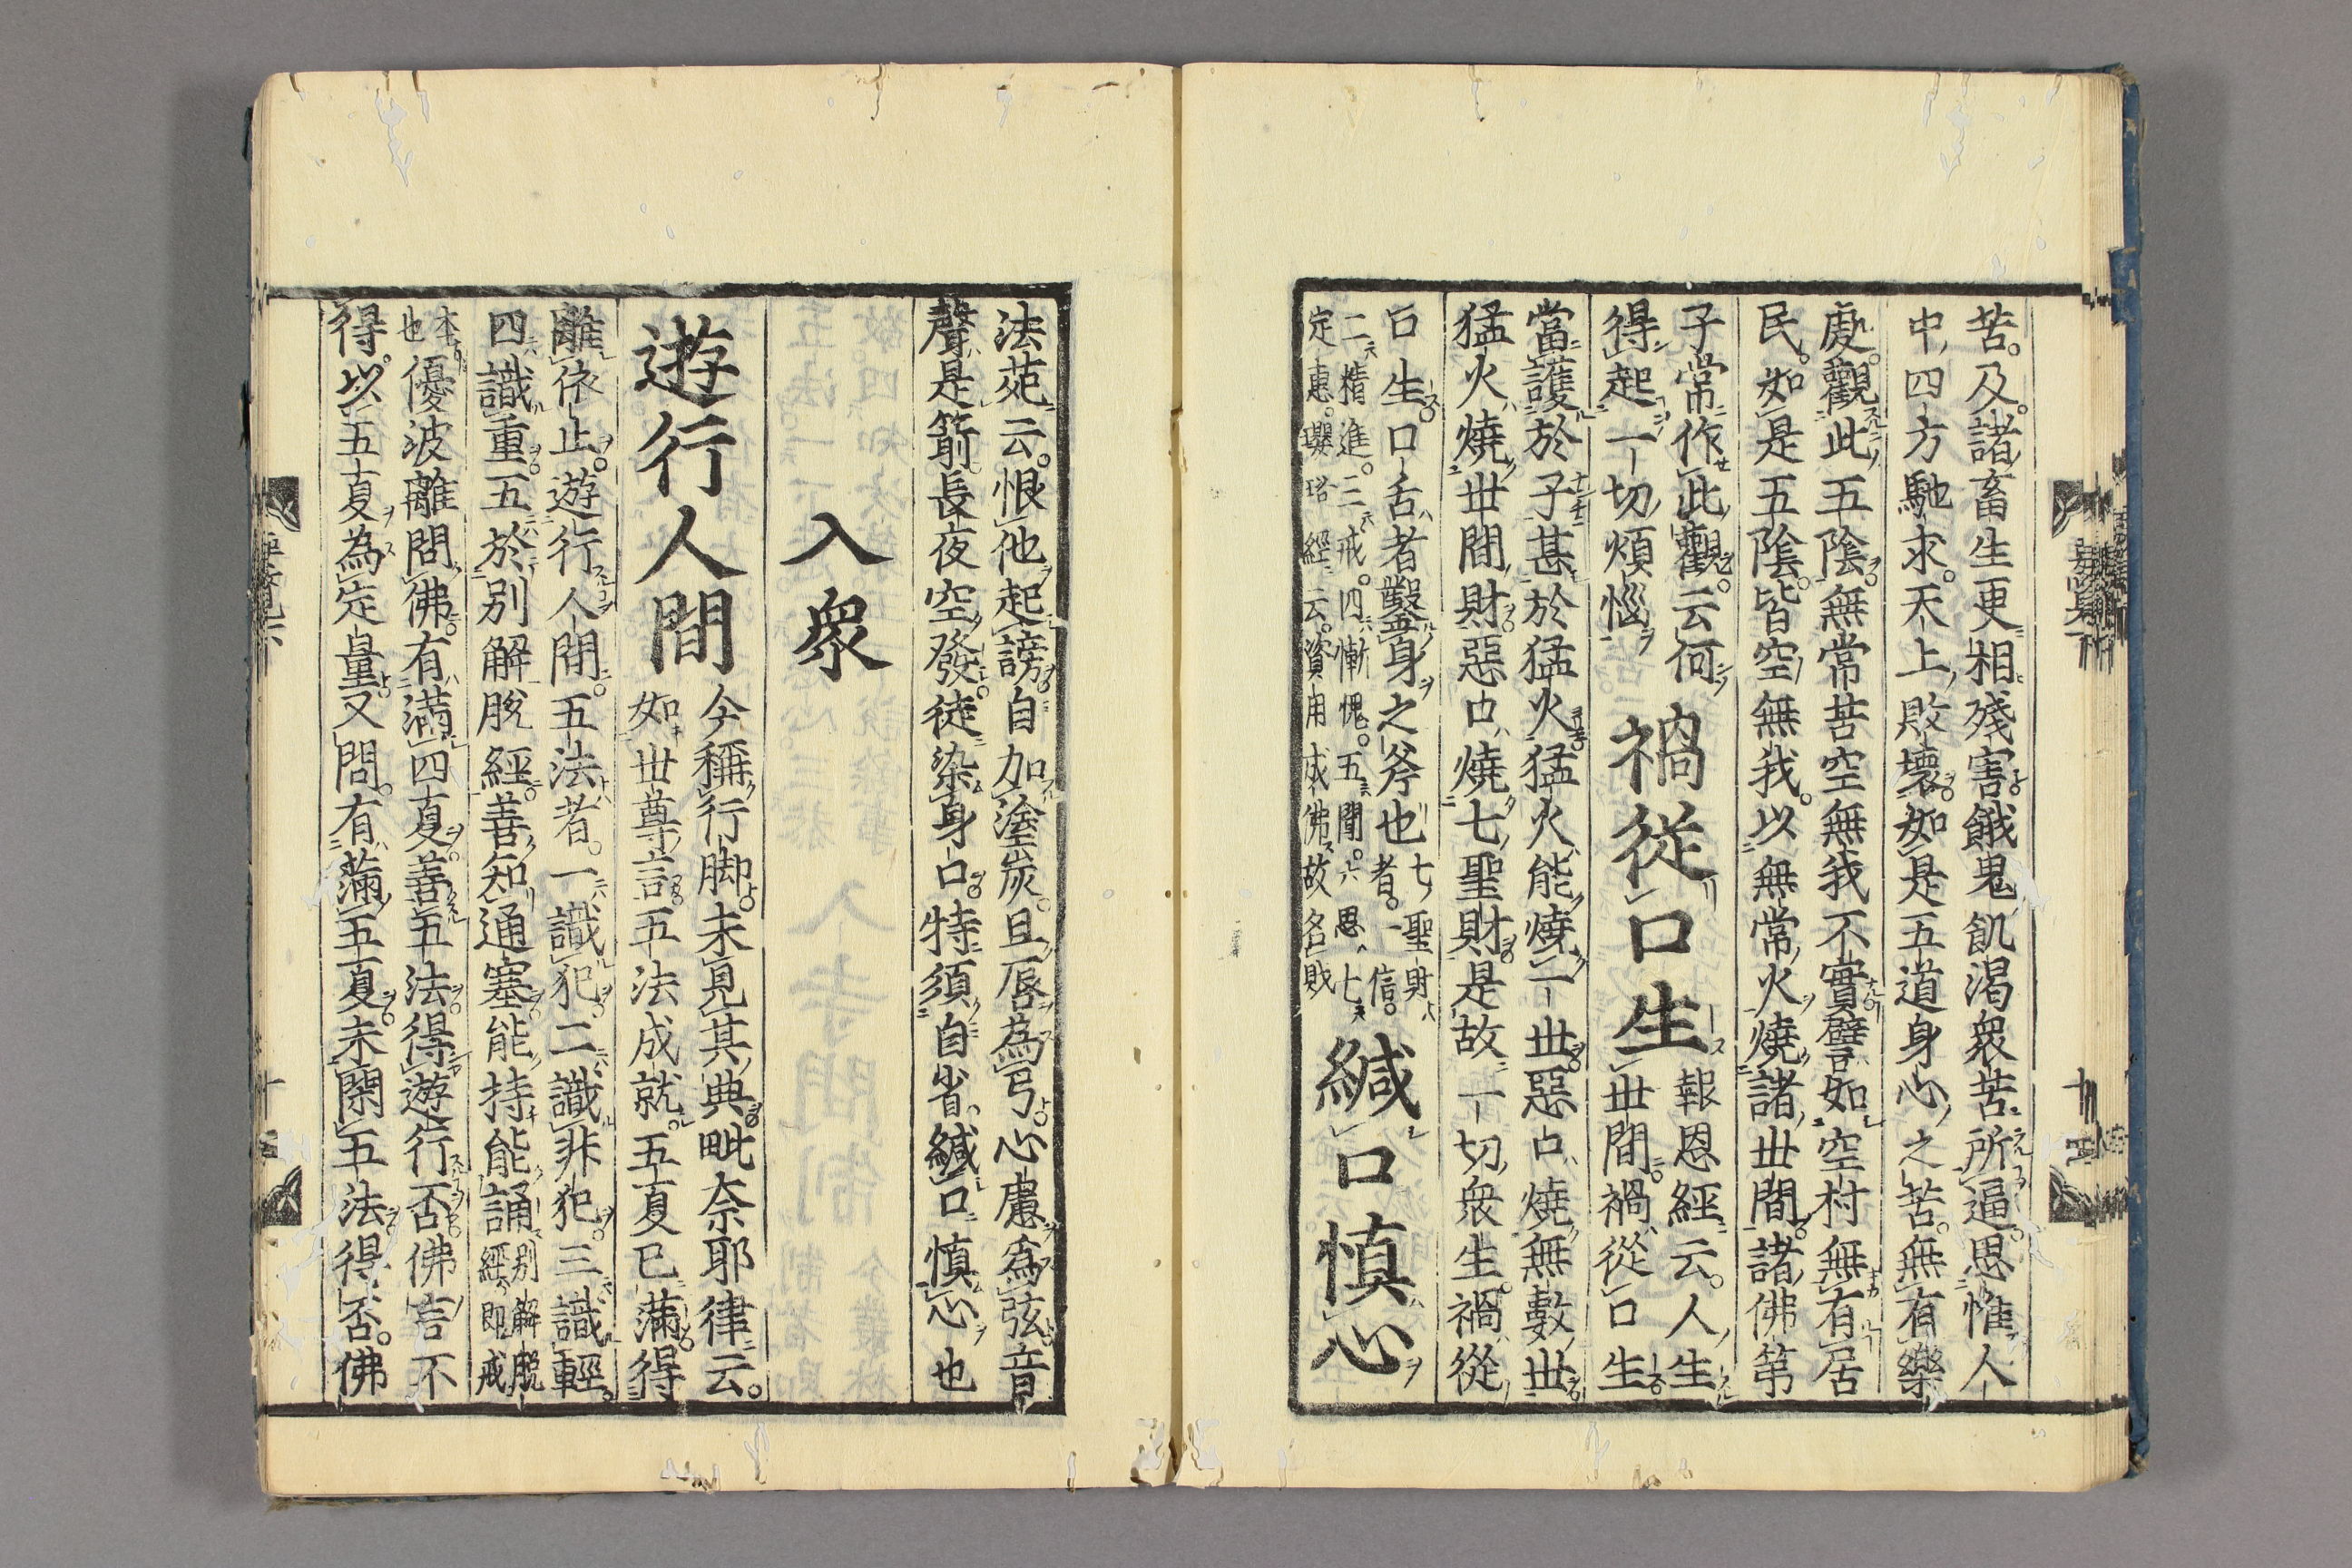 苦。及諸畜生更相殘害餓鬼飢渴衆苦所逼。思惟人
中四方馳求。天上敗壞。如是五道身心之苦。無有樂
處。觀此五陰。無常苦空無我不實譬如空村無有居
民。如是五陰。皆空無我。以無常火燒諸世間。諸佛第
子常作此觀。云何
得起一切煩惱
禍從口生
報恩經云。人生
世間。禍從口生
當護於子甚於猛火猛火能燒一世惡口燒無數世
猛火燒世間財惡口燒七聖財是故一切衆生。禍從
口生。口舌者鑿身之斧也
七聖財
者。一信。
二精進。三戒。四慚愧。五聞。六思七
定惠。瓔珞經云。資用成佛故名財
緘口慎心
法苑云。恨他起謗自加塗炭。且唇為弓心慮為弦音
聲是箭長夜空發徒染身口。特須自省緘口慎心也
入衆
遊行人間
今稱行脚。未見其典毗奈耶律云。
如世尊言五法成就。五夏已滿得
離依止。遊行人間。五法者。一識犯二識非犯三識輕
四識重五於別解脫經善知通塞能持能誦
別解脫
經即戒
本
也
優波離問佛。有滿四夏善五法得遊行否佛言不
得。以五夏為定量又問。有滿五夏未閑五法得否。佛